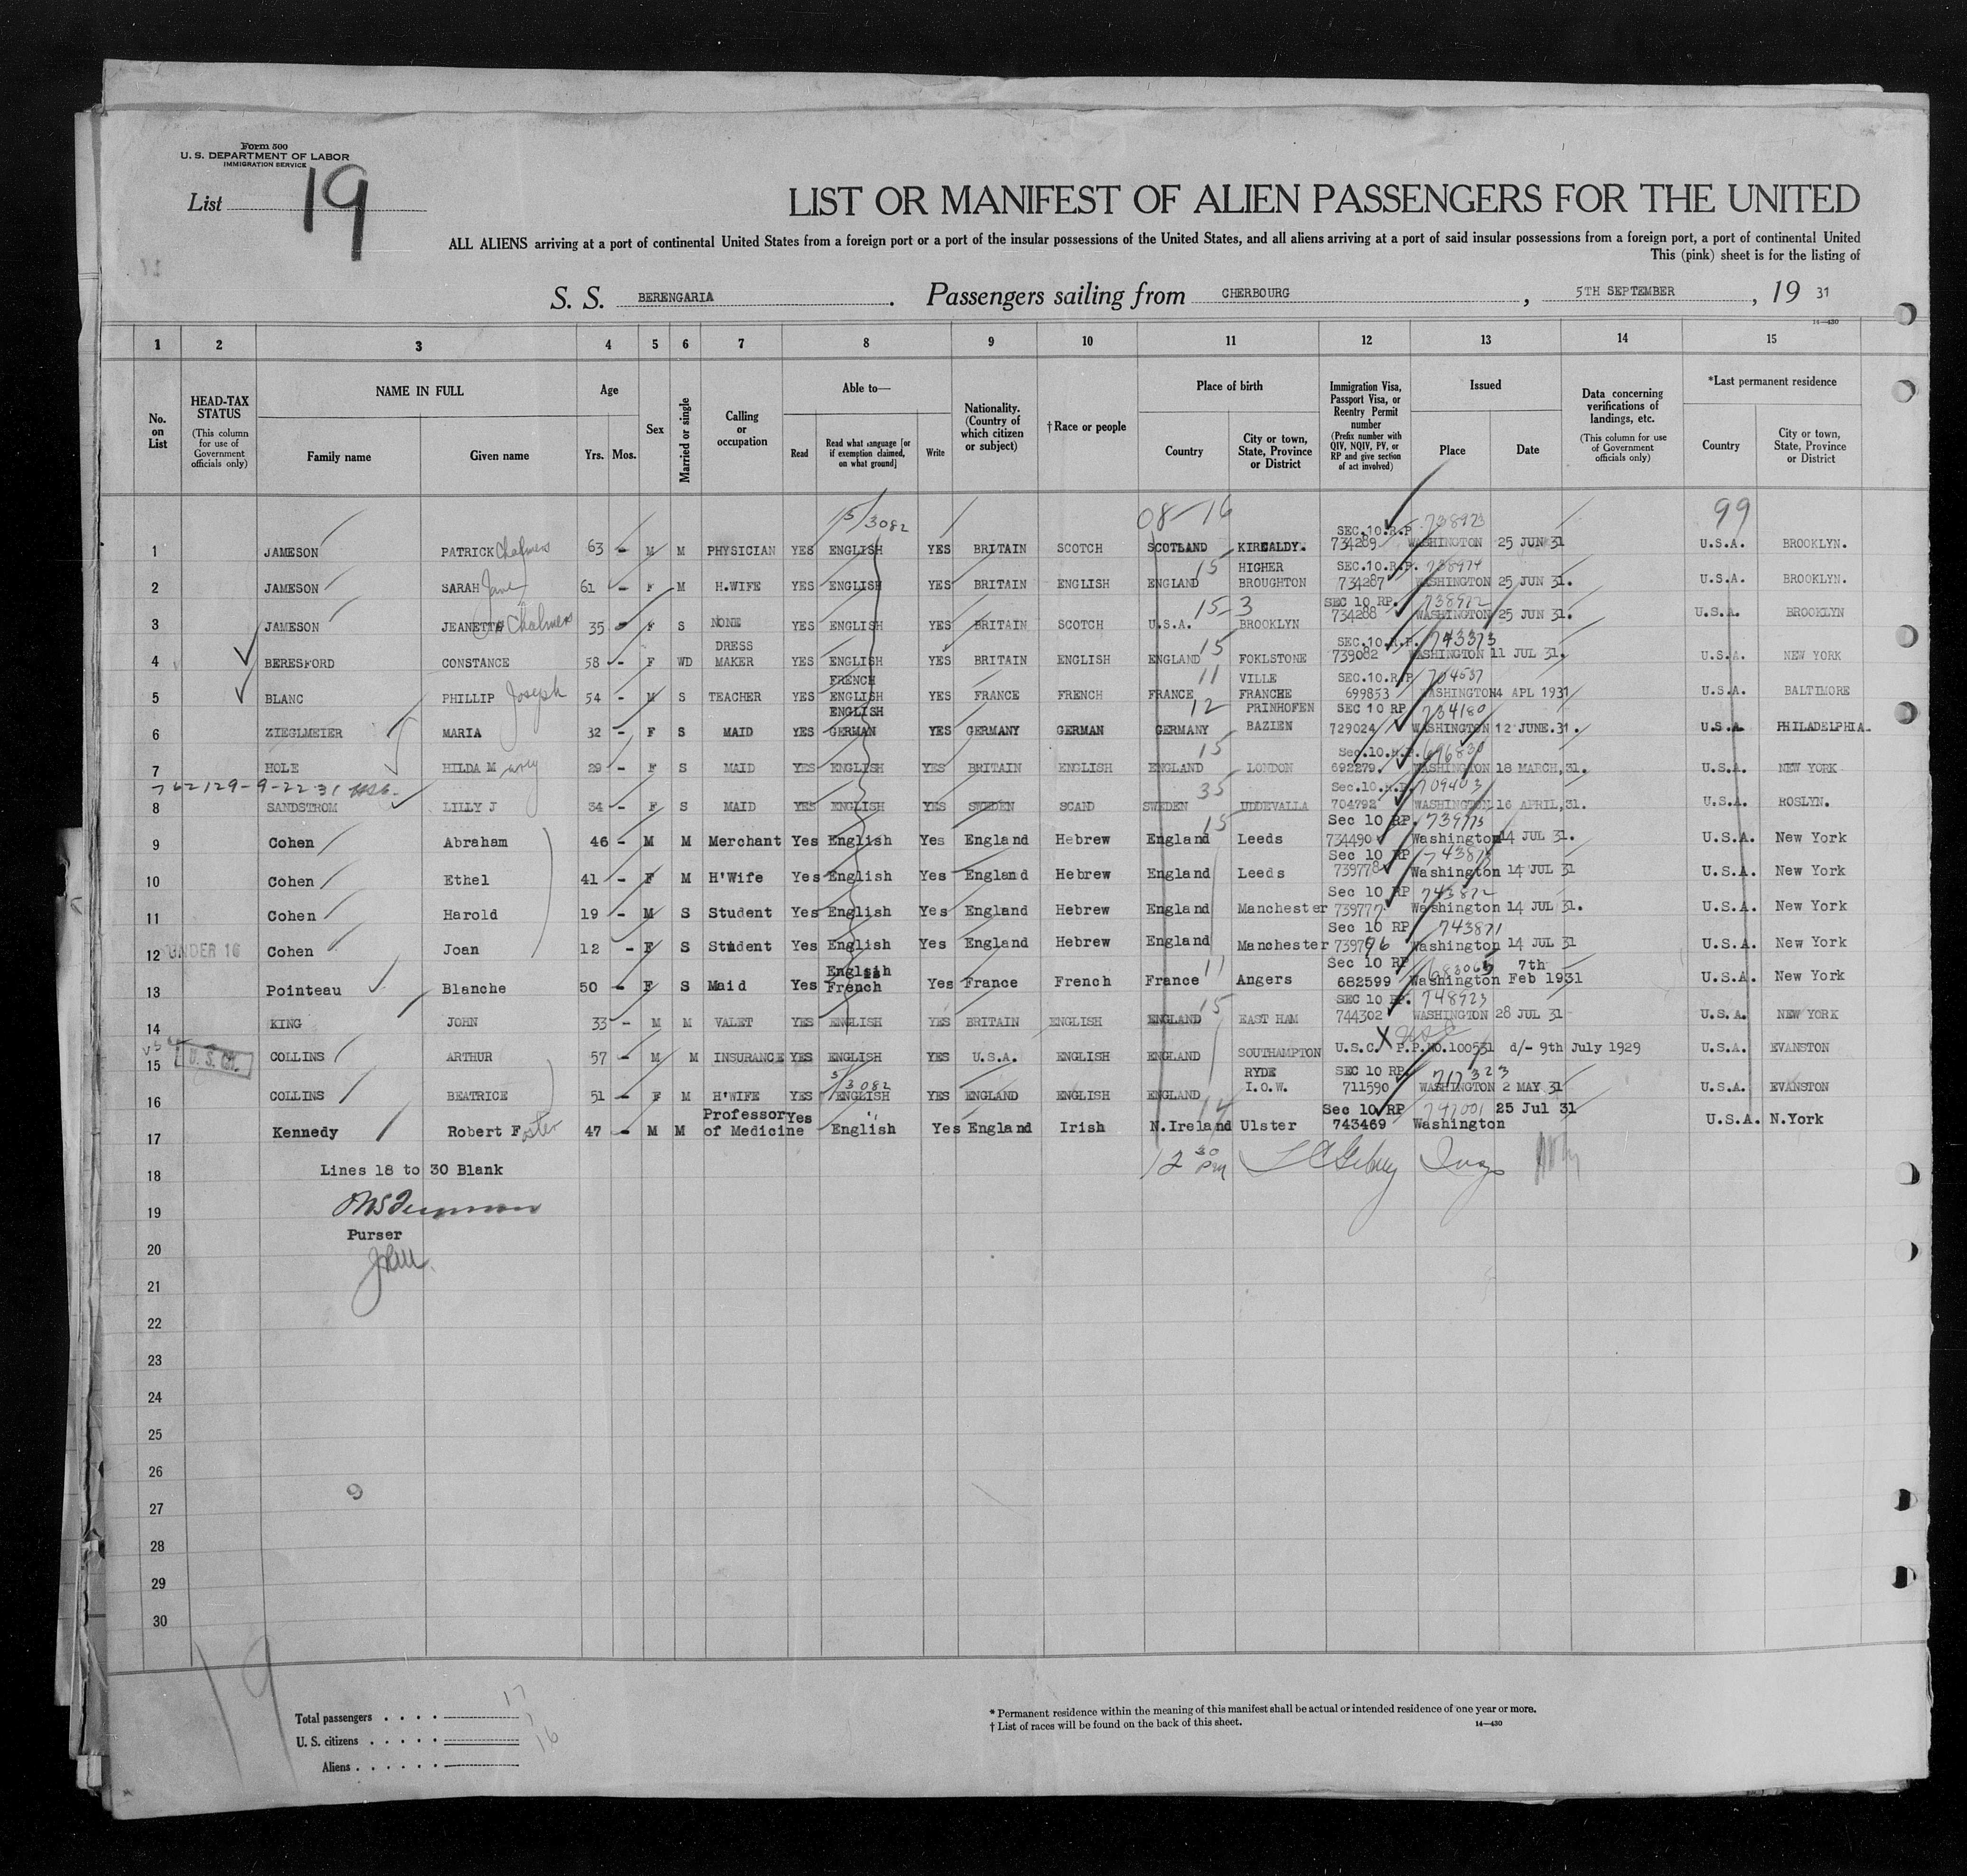 Form 500
U. S. DEPARTMENT OF LABOR
IMMIGRATION SERVICE
List 19
LIST OR MANIFEST OF ALIEN PASSENGERS FOR THE UNITED
ALL ALIENS arriving at a port of continental United States from a foreign port or a port of the insular possessions of the United States, and all aliens arriving at a port of said insular possessions from a foreign port, a port of continental United
This (pink) sheet is for the listing of
S. S. BERENGARIA . Passengers sailing from CHERBOURG , 5TH SEPTEMBER , 19 31
14—430
1 2 3 4 5 6 7 8 9 10 11 12 13 14 15
No. on List
HEAD-TAX STATUS (This column for use of Government officials only)
NAME IN FULL Family name Given name
Age Yrs. Mos.
Sex
Married or single
Calling or occupation
Able to— Read Read what language [or if exemption claimed, on what ground] Write
Nationality. (Country of which citizen or subject)
†Race or people
Place of birth Country City or town, State, Province or District
Immigration Visa, Passport Visa, or Reentry Permit number (Prefix number with QIV, NQIV, PV, or RP and give section of act involved)
Issued Place Date
Data concerning verifications of landings, etc. (This column for use of Government officials only)
*Last permanent residence Country City or town, State, Province or District
5/3082 08-16 99
1 JAMESON PATRICK Chalmers 63 - M M PHYSICIAN YES ENGLISH YES BRITAIN SCOTCH SCOTLAND KIRCALDY. SEC.10.R.P. 734289 738923 WASHINGTON 25 JUN 31 U.S.A. BROOKLYN.
2 JAMESON SARAH Jane 61 - F M H.WIFE YES ENGLISH YES BRITAIN ENGLISH ENGLAND 15 HIGHER BROUGHTON SEC.10.R.P. 734287 738974 WASHINGTON 25 JUN 31. U.S.A. BROOKLYN.
3 JAMESON JEANETTE Chalmers 35 - F S NONE YES ENGLISH YES BRITAIN SCOTCH U.S.A. 15-3 BROOKLYN SEC 10 RP. 734288 738972 WASHINGTON 25 JUN 31. U.S.A. BROOKLYN
4 BERESFORD CONSTANCE 58 - F WD DRESS MAKER YES ENGLISH YES BRITAIN ENGLISH ENGLAND 15 FOKLSTONE SEC.10.R.P. 739082 743373 WASHINGTON 11 JUL 31. U.S.A. NEW YORK
5 BLANC PHILLIP Joseph 54 - M S TEACHER YES FRENCH ENGLISH YES FRANCE FRENCH FRANCE 11 VILLE FRANCHE SEC.10.R.P 699853 704537 WASHINGTON 4 APL 1931 U.S.A. BALTIMORE
6 ZIEGLMEIER MARIA 32 - F S MAID YES ENGLISH GERMAN YES GERMANY GERMAN GERMANY 12 PRINHOFEN BAZIEN SEC 10 RP 729024 734180 WASHINGTON 12 JUNE.31. U.S.A. PHILADELPHIA.
7 HOLE HILDA M 29 - F S MAID YES ENGLISH YES BRITAIN ENGLISH ENGLAND 15 LONDON Sec.10.R.P. 692279. 696830 WASHINGTON 18 MARCH,31. U.S.A. NEW YORK
762129-9-22-31
8 SANDSTROM LILLY J 34 - F S MAID YES ENGLISH YES SWEDEN SCAND SWEDEN 35 UDDEVALLA Sec.10.R.P. 704792 709403 WASHINGTON 16 APRIL,31. U.S.A. ROSLYN.
9 Cohen Abraham 46 - M M Merchant Yes English Yes England Hebrew England 15 Leeds Sec 10 RP. 734490 739775 Washington 14 JUL 31. U.S.A. New York
10 Cohen Ethel 41 - F M H'Wife Yes English Yes England Hebrew England Leeds Sec 10 RP 739778 743873 Washington 14 JUL 31 U.S.A. New York
11 Cohen Harold 19 - M S Student Yes English Yes England Hebrew England Manchester Sec 10 RP 739777 743872 Washington 14 JUL 31. U.S.A. New York
12 UNDER 16 Cohen Joan 12 - F S Student Yes English Yes England Hebrew England Manchester Sec 10 RP 739776 743871 Washington 14 JUL 31 U.S.A. New York
13 Pointeau Blanche 50 - F S Maid Yes English French Yes France French France 11 Angers Sec 10 RP 682599 Washington 7th Feb 1931 U.S.A. New York
14 KING JOHN 33 - M M VALET YES ENGLISH YES BRITAIN ENGLISH ENGLAND 15 EAST HAM SEC 10 RP. 744302 748923 WASHINGTON 28 JUL 31 U.S.A. NEW YORK
15 U. S. Ct. COLLINS ARTHUR 57 - M M INSURANCE YES ENGLISH YES U.S.A. ENGLISH ENGLAND SOUTHAMPTON U.S.C. X USC P.P.NO.100531 d/- 9th July 1929 U.S.A. EVANSTON
16 COLLINS BEATRICE 51 - F M H'WIFE YES 3/3082 ENGLISH YES ENGLAND ENGLISH ENGLAND RYDE I.O.W. SEC 10 RP. 711590 717323 WASHINGTON 2 MAY 31 U.S.A. EVANSTON
17 Kennedy Robert Foster 47 - M M Professor of Medicine Yes English Yes England Irish N.Ireland 14 Ulster Sec 10 RP 743469 747001 Washington 25 Jul 31 U.S.A. N.York
18 Lines 18 to 30 Blank 12 30 PM
19
Purser
20
21
22
23
24
25
26
27
28
29
30
9
19
Total passengers . . . . 17
U. S. citizens . . . . . 1
Aliens . . . . . . 16
* Permanent residence within the meaning of this manifest shall be actual or intended residence of one year or more.
† List of races will be found on the back of this sheet. 14—430